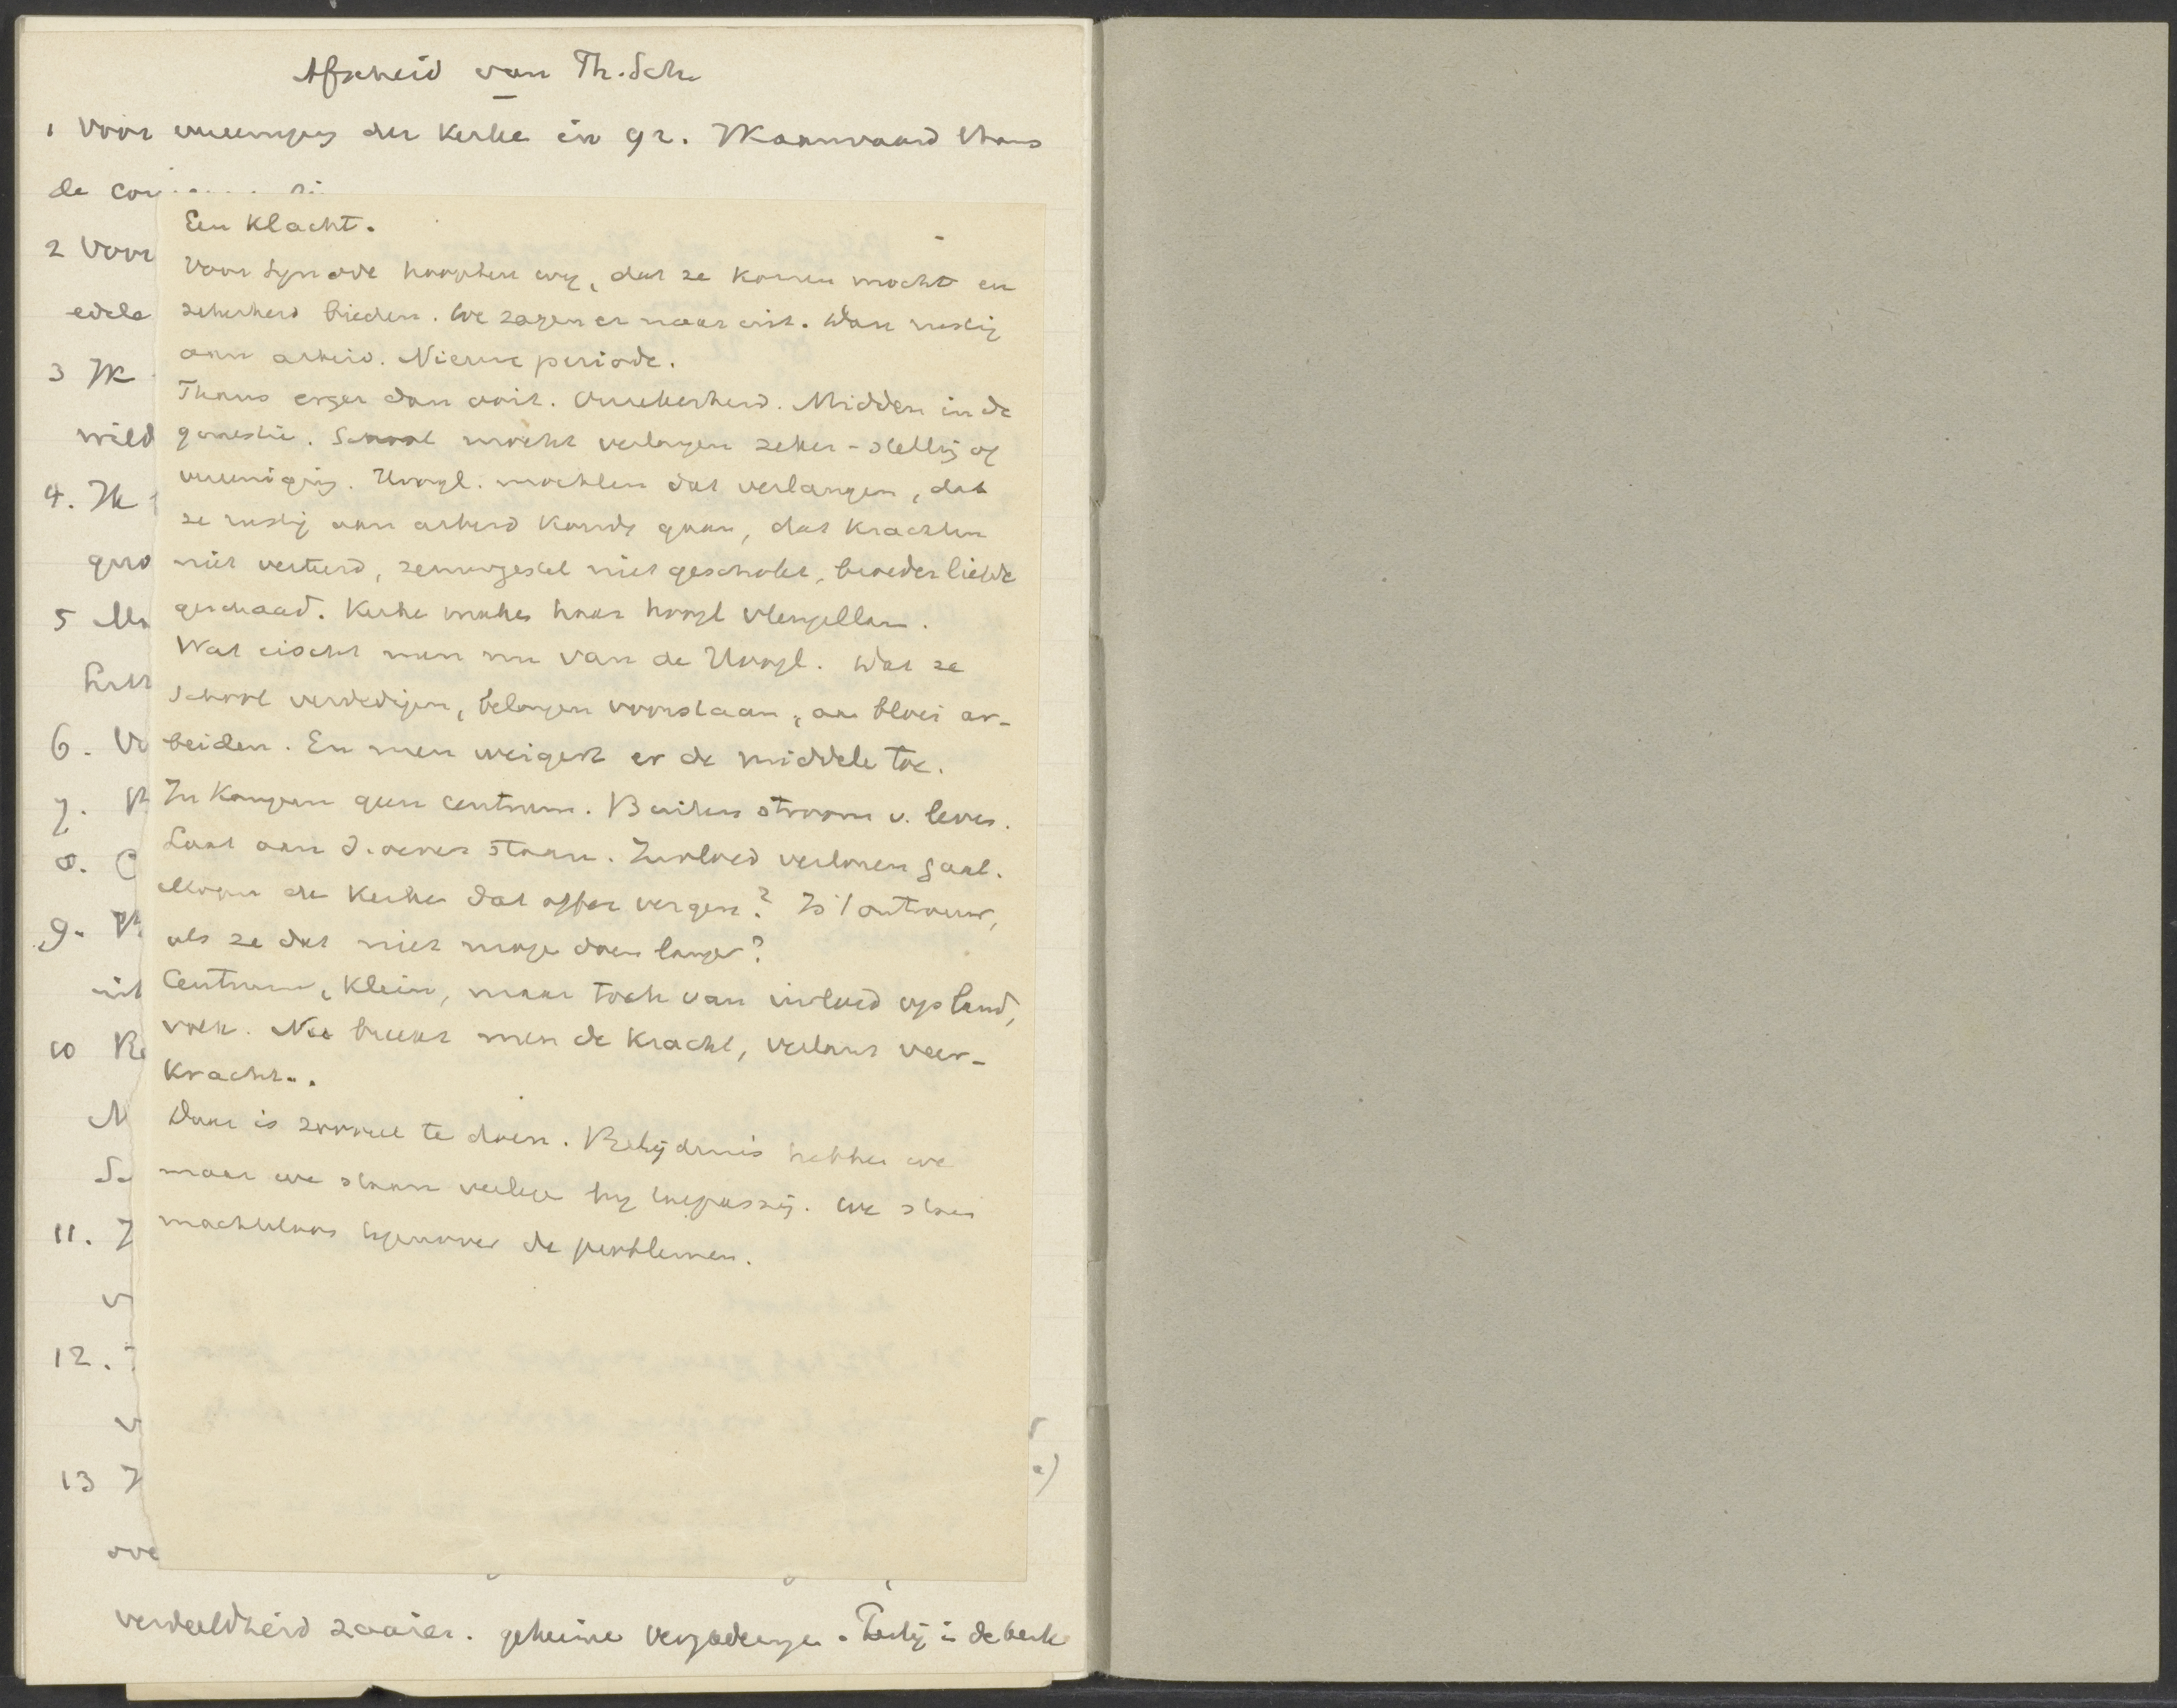 Afscheid van Th. Sch.
1 Voor vereeniging der Kerke in gr. Ik aanvaard thans
de con
2 Voor
edele
3 Ik
wild
4. Ik
5
6. Vo
7.
8. C
9.
uit
10
11.
12.
13
ove
Een Klacht.
Voor Synode hoopten wy, dat ze komen mocht en
zekerheid bieden. We zagen er naar uit. Dan rustig
aan arbeid. Nieuwe periode.
Thans erger dan ooit. Onzekerheid. Midden in de
quaestie. School mocht verlangen zeker-stelling of
vereeniging. Hoogl. mochten dat verlangen, dat
ze rustig aan arbeid konde gaan, dat krachten
niet verteerd, zenuwgestel niet geschokt, broederliefde
geschaad. Kerke make haar hoogl vleugellam.
Wat eischt men nu van de Hoogl. Dat ze
School verdedigen, belangen voorstaan, aan bloei ar-
beiden. En men weigert er de middele toe.
In Kampen geen centrum. Buiten stroom v. leven.
Laat aan d. oever staan. Invloed verloren gaat.
Mogen de Kerke dat offer vergen? Is 't ontrouw,
als ze dat niet moge doen langer?
Centrum, klein, maar toch van invloed op land,
volk. Nu breekt men de kracht, verlamt veer-
kracht..
Daar is zooveel te doen. Belijdenis hebben we
maar we staan verlege by toepassing. We staan
machteloos tegenover de problemen.
verdeeldheid zaaien. geheime vergaderinge. Partij in de kerk